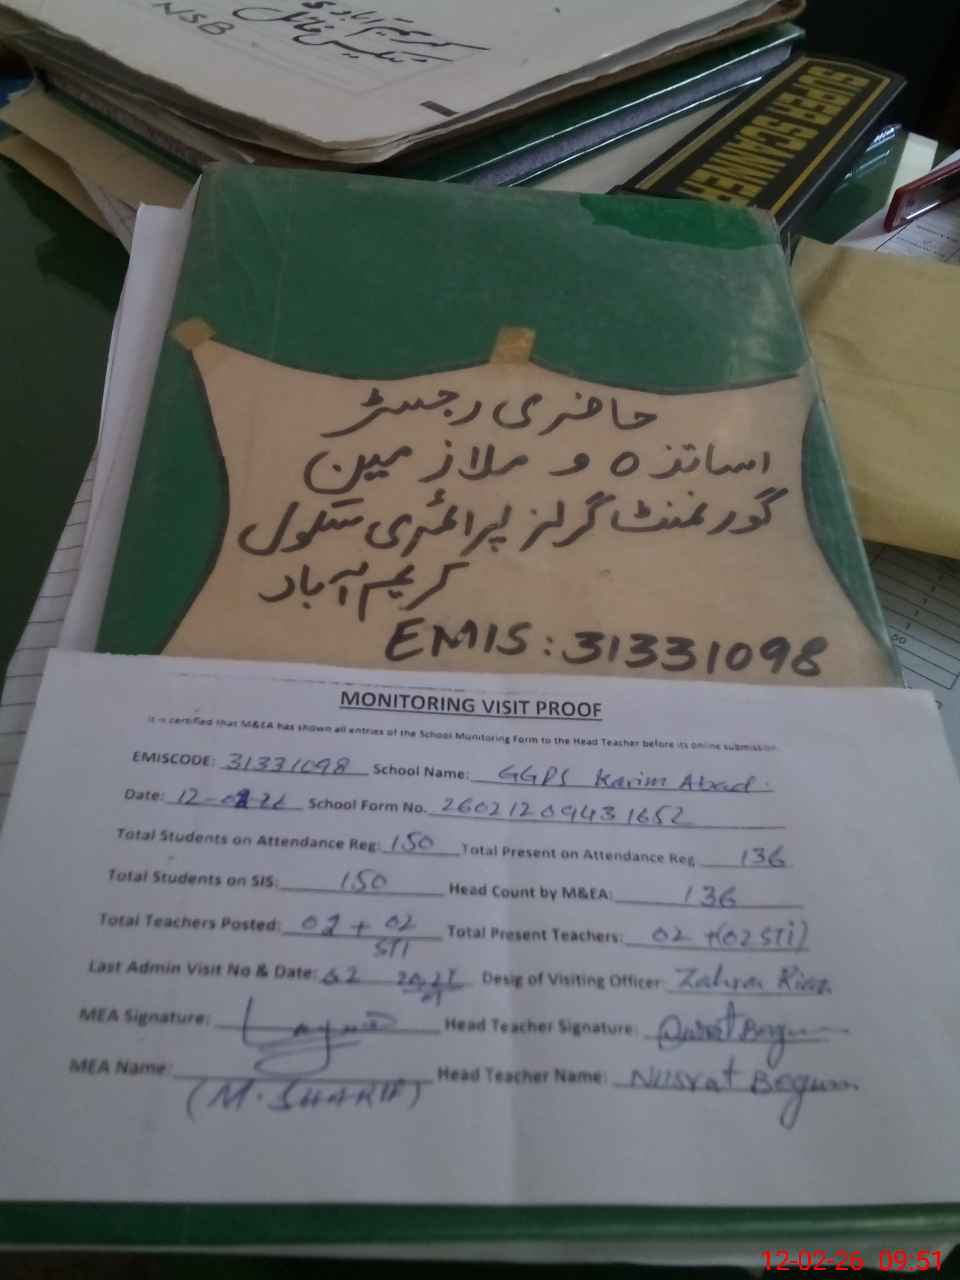 کریم آباد
ٹیکس فائل
NSB
SUPER SCANNER
حاضری رجسٹر
اساتذہ و ملازمین
گورنمنٹ گرلز پرائمری سکول
کریم آباد
EMIS: 31331098
MONITORING VISIT PROOF
It is certified that M&EA has shown all entries of the School Munitoring Form to the Head Teacher before its online submission
EMISCODE: 31331098 School Name: GGPS Karim Abad.
Date: 12-02-26 School Form No. 26021209431652
Total Students on Attendance Reg: 150 Total Present on Attendance Reg 136
Total Students on SIS: 150 Head Count by M&EA: 136
Total Teachers Posted: 02 + 02 STI Total Present Teachers: 02 +(02 STI)
Last Admin Visit No & Date: 02 Desig of Visiting Officer: Zahra Riaz
MEA Signature: Head Teacher Signature:
MEA Name: (M. SHARIF) Head Teacher Name: Nusrat Begum
12-02-26 09:51